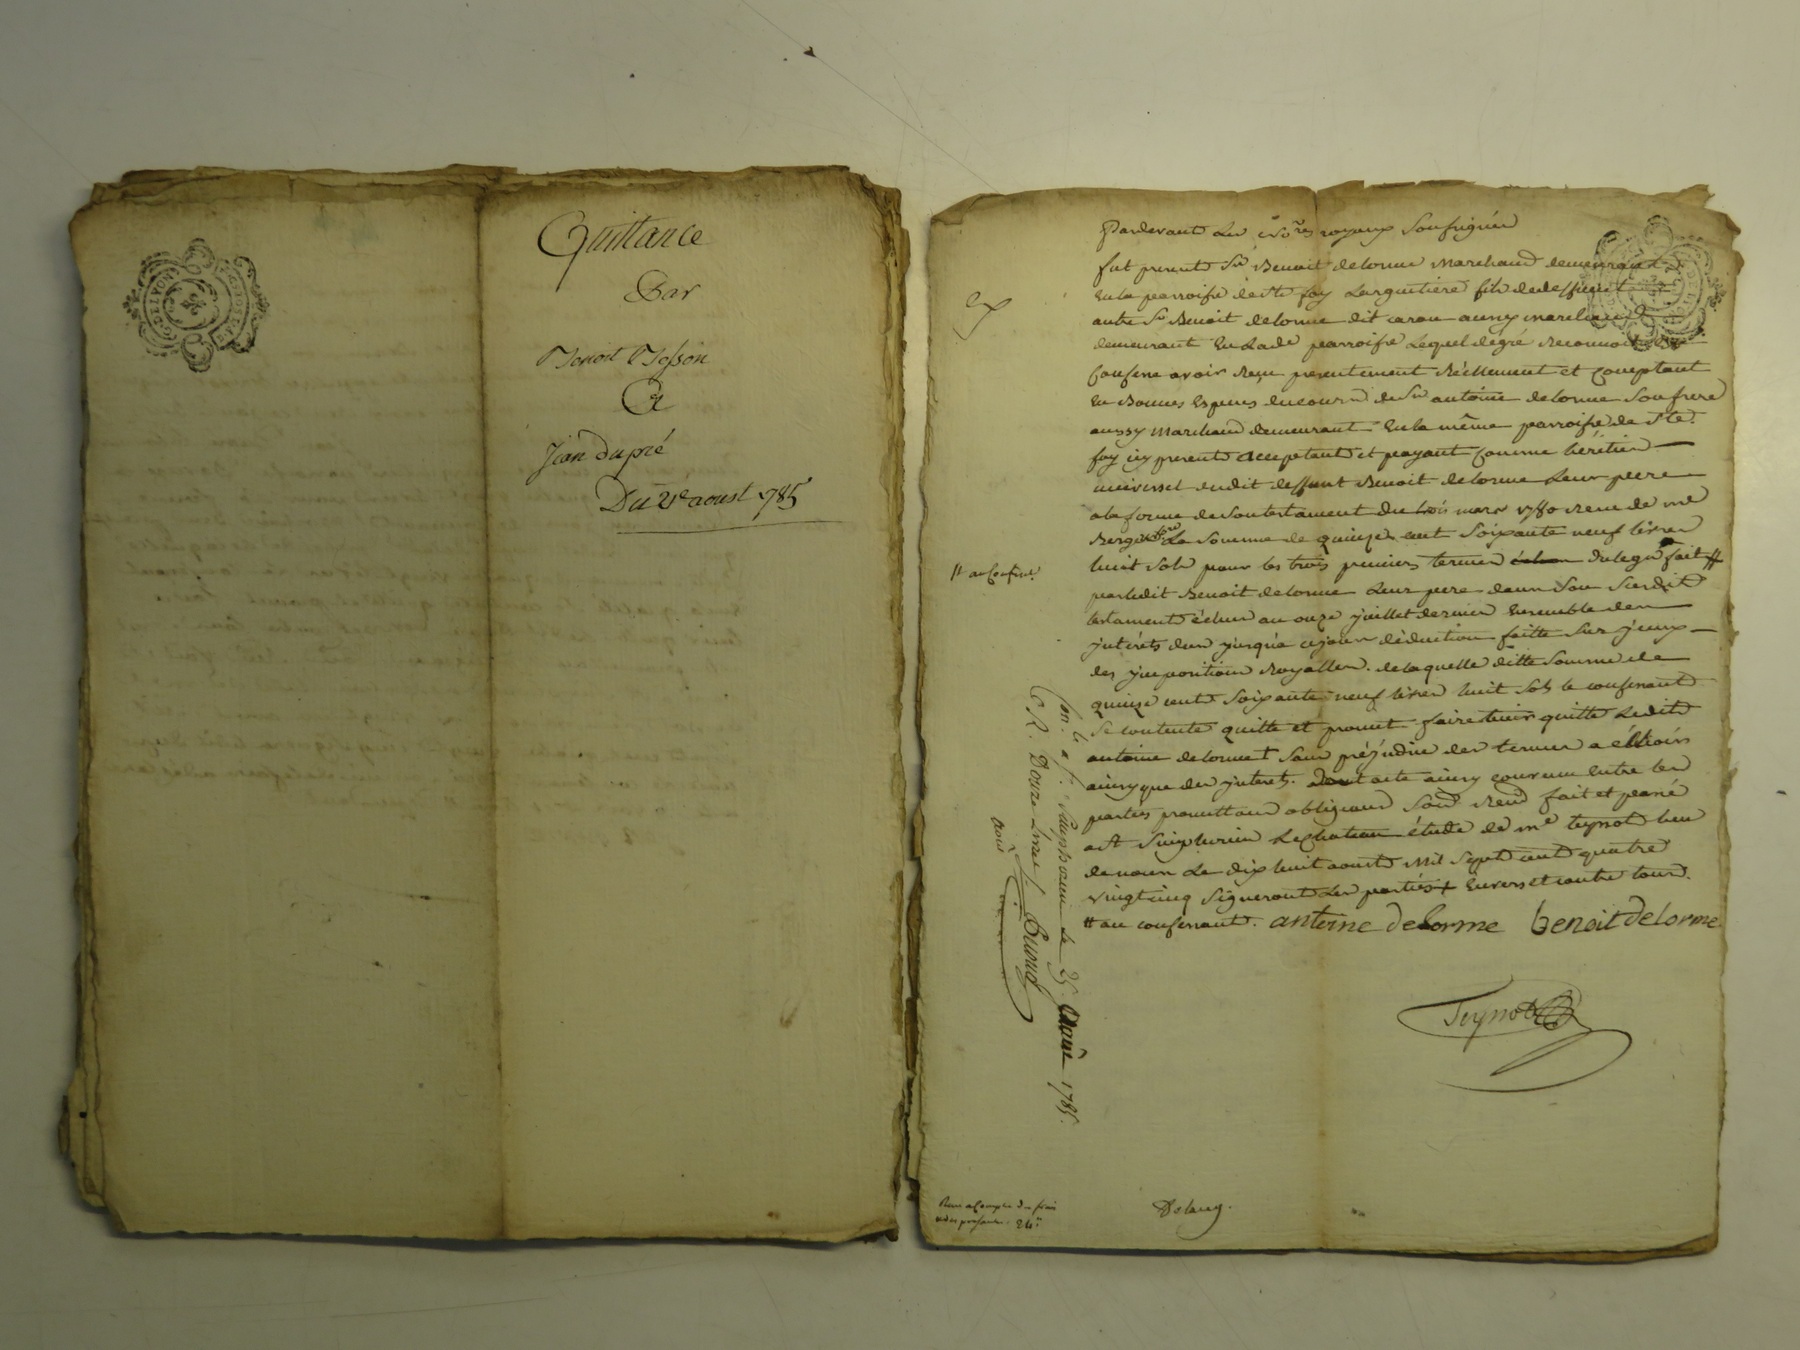 Quittance
Par
Benoit Besson
A
Jean dupré
Du 21e aoust 1785
G. DE LYON
Pardevant Les No.res royaux Soussignés
fut present Sr Benoit delorme Marchand demeurant
En la parroisse de Ste foy Largentiere fils de deffunt
autre Sr Benoit delorme dit caron aussy marchand
demeurant En lade parroisse Lequel de gré reconnoit
Confesse avoir reçu presentement réellement et Comptant
En Bonnes Especes du cours de Sr antoine delorme Son frere
aussy Marchand demeurant En la même parroisse de Ste
foy icy present acceptant et payant Comme héritier
universel dudit deffunt Benoit delorme Leur pere
a la forme de Son testament du trois mars 1780 reçu de me
La Somme de quinze cent Soixante neuf livres
huit Sols pour les trois premiers termes du legs fait #
# au Confess.t
par ledit Benoit delorme Leur pere dans Son Susdit
testament échus au onze juillet dernier Ensemble des
jnterêts d'en jusqu'a ce jour déduction faitte Sur jceux
des jmpositions Royalles. de laquelle ditte Somme de
quinze cent Soixante neuf livres huit Sols le confessant
Se contente quitte et promet faire tenir quitte Ledit
antoine delorme Sans préjudice des termes a échoirs
ainsy que des jnterets. Dont acte ainsy convenu Entre les
parties promettans obligeans Soud. Rend. fait et passé
a St Simphorien Le Chateau étude de me teynot L'un
de nous Le dix huit aoust Mil Sept cent quatre
vingt cinq Signeront Les parties Envers et contre tous.
# au confessant. antoine delorme benoit delorme
Con.lé a St. Simphorien Le 25. Aout 1785.
C. R. Douze Livres
Teynot
Reçu a Compte des frais
des presentes 24